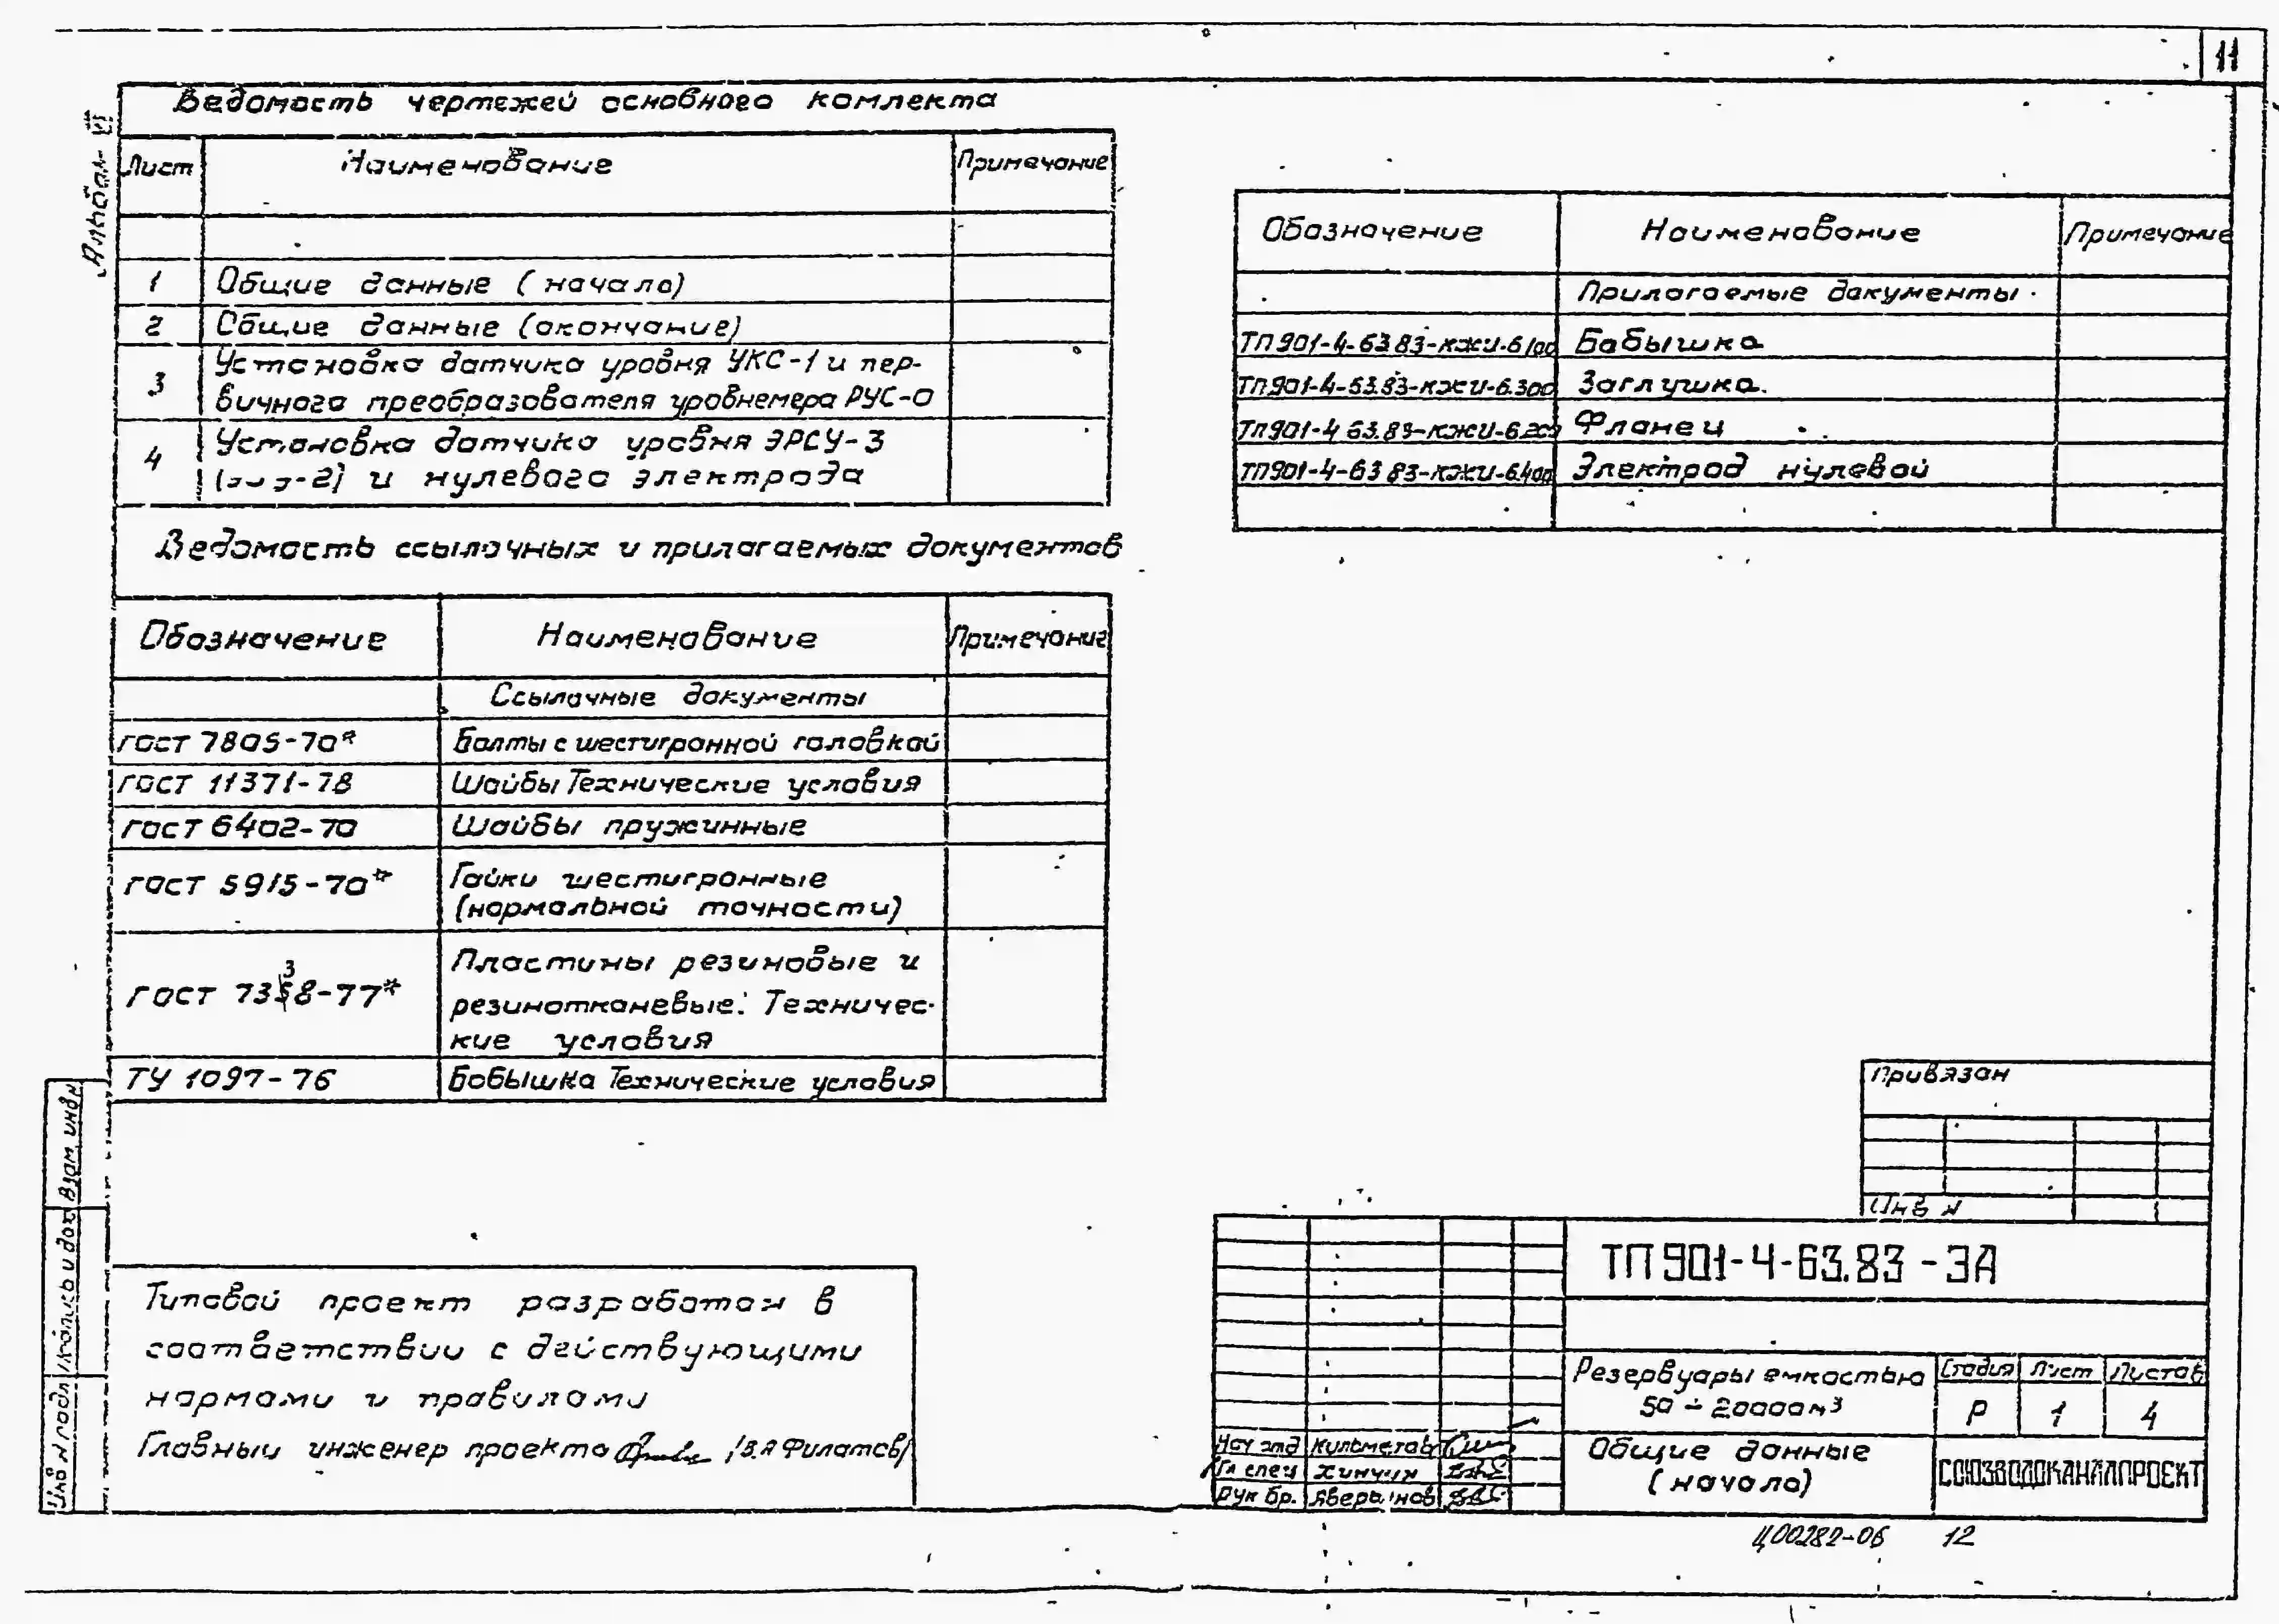 11
Альбом VI
Ведомость чертежей основного комлекта
Лист Наименование Примечание
1 Общие данные (начало)
2 Общие данные (окончание)
3 Установка датчика уровня УКС-1 и пер-
вичного преобразователя уровнемера РУС-О
4 Установка датчика уровня ЭРСУ-3
и нулевого электрода
Ведомость ссылочных и прилагаемых документов
Обозначение Наименование Примечание
Ссылочные документы
гост 7805-70* Болты с шестигранной головкой
гост 11371-78 Шайбы Технические условия
гост 6402-70 Шайбы пружинные
гост 5915-70* Гайки шестигранные
(нормальной точности)
3
гост 7358-77* Пластины резиновые и
резинотканевые. Техничес-
кие условия
ТУ 1097-76 Бобышка Технические условия
Обозначение Наименование Примечание
Прилагаемые документы
ТП901-4-63.83-КЖИ-6.100 Бобышка
ТП901-4-63.83-КЖИ-6.300 Заглушка.
ТП901-4-63.83-КЖИ-6.200 Фланец
ТП901-4-63.83-КЖИ-6.400 Электрод нулевой
Типовой проект разработан в
соответствии с действующими
нормами и правилами
Главный инженер проекта /В.А Филатов/
Взам. инв.N
Подпись и дата
Инв N подл
Привязан
Инв N
ТП901-4-63.83-ЭА
Резервуары емкостью
50÷20000м³
Стадия Лист Листов
Р 1 4
Нач отд Кульметов
Гл спец Хинчин
Рук бр. Аверьянов
Общие данные
(начало)
СОЮЗВОДОКАНАЛПРОЕКТ
Ц00282-06 12